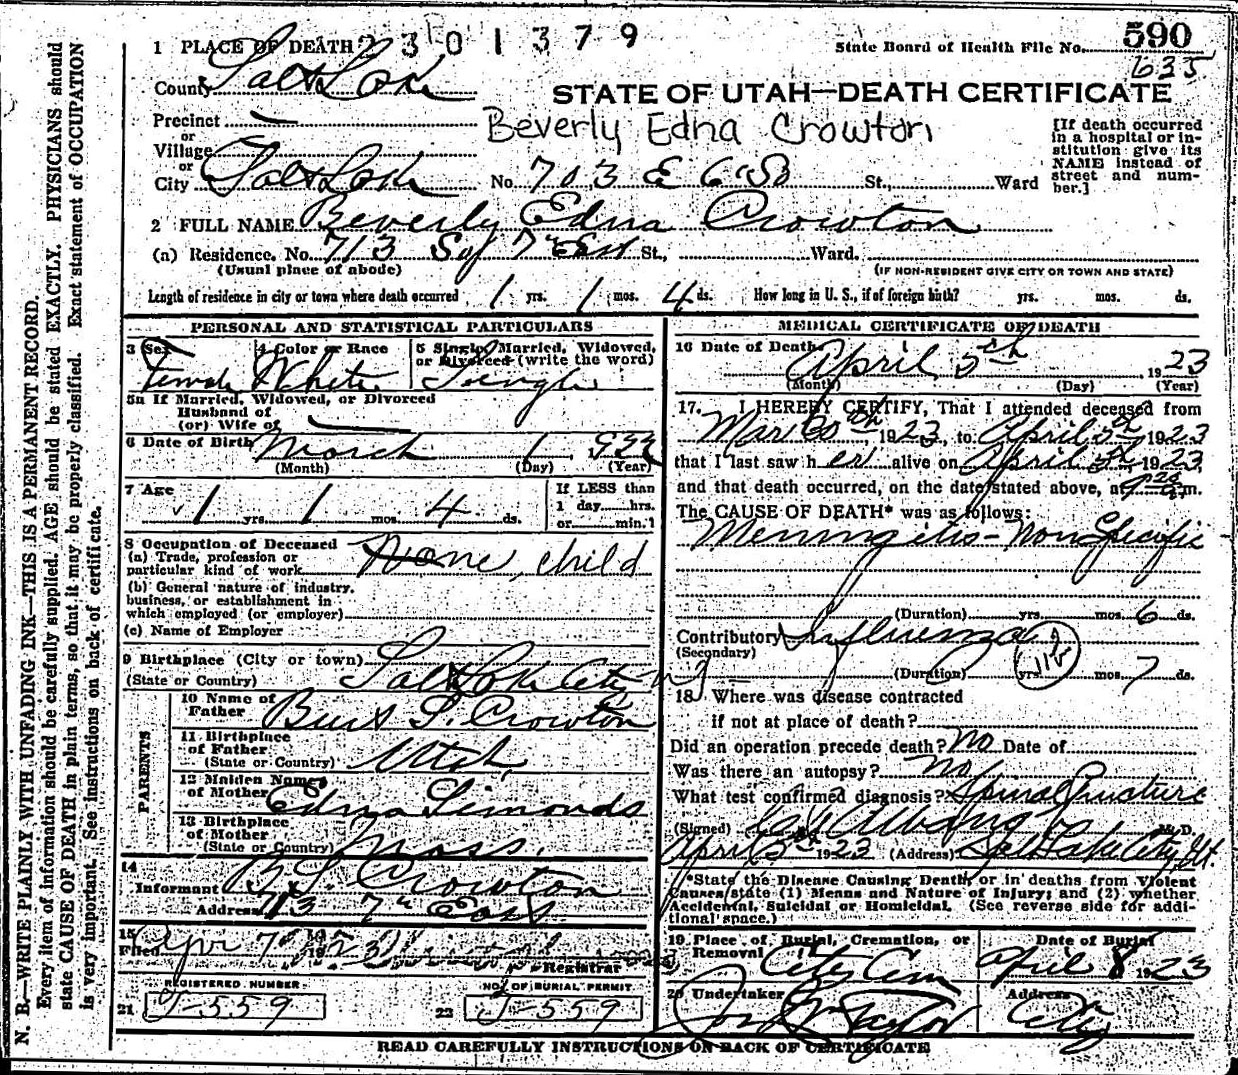 N. B.—WRITE PLAINLY WITH UNFADING INK—THIS IS A PERMANENT RECORD.
Every item of information should be carefully supplied. AGE should be stated EXACTLY. PHYSICIANS should
state CAUSE OF DEATH in plain terms, so that it may be properly classified. Exact statement of OCCUPATION
is very important. See instructions on back of certificate.
1 PLACE OF DEATH 2301379
State Board of Health File No. 590
635
County Salt Lake
STATE OF UTAH—DEATH CERTIFICATE
Precinct —
Beverly Edna Crowton
or
Village
or
City Salt Lake No. 703 E 6 So St., Ward
[If death occurred
in a hospital or in-
stitution give its
NAME instead of
street and num-
ber.]
2 FULL NAME Beverly Edna Crowton
(a) Residence. No. 713 So 7th East St., Ward.
(Usual place of abode)
(IF NON-RESIDENT GIVE CITY OR TOWN AND STATE)
Length of residence in city or town where death occurred 1 yrs. 1 mos. 4 ds. How long in U. S., if of foreign birth? yrs. mos. ds.
PERSONAL AND STATISTICAL PARTICULARS
3 Sex 4 Color or Race 5 Single, Married, Widowed,
or Divorced (write the word)
Female White Single
5a If Married, Widowed, or Divorced
Husband of
(or) Wife of
6 Date of Birth March 1 1922
(Month) (Day) (Year)
7 Age If LESS than
1 day hrs.
1 yrs. 1 mos. 4 ds. or min.
8 Occupation of Deceased
(a) Trade, profession or
particular kind of work None, child
(b) General nature of industry,
business, or establishment in
which employed (or employer)
(c) Name of Employer
9 Birthplace (City or town)
(State or Country) Salt Lake City
PARENTS
10 Name of
Father Burt S. Crowton
11 Birthplace
of Father
(State or Country) Utah
12 Maiden Name
of Mother Edna Simonds
13 Birthplace
of Mother
(State or Country) Mass.
14
Informant B.S. Crowton
Address 713 7th East
15
Filed Apr 7 1923
Registrar
REGISTERED NUMBER NO. OF BURIAL PERMIT
21 J-559 22 J-559
MEDICAL CERTIFICATE OF DEATH
16 Date of Death April 5th 1923
(Month) (Day) (Year)
17. I HEREBY CERTIFY, That I attended deceased from
Mar 30th, 1923, to April 5th 1923
that I last saw her alive on April 5th, 1923,
and that death occurred, on the date stated above, at m.
The CAUSE OF DEATH* was as follows:
Meningitis - Non Specific
(Duration) yrs. mos. 6 ds.
Contributory Influenza
(Secondary)
(Duration) yrs. mos. 7 ds.
18 Where was disease contracted
if not at place of death?
Did an operation precede death? No Date of
Was there an autopsy? No
What test confirmed diagnosis? Spinal Puncture
(Signed) M. D.
April 5th 1923 (Address) Salt Lake City, Ut.
*State the Disease Causing Death, or in deaths from Violent
Causes state (1) Means and Nature of Injury; and (2) whether
Accidental, Suicidal or Homicidal. (See reverse side for addi-
tional space.)
19 Place of Burial, Cremation, or Date of Burial
Removal City Cem April 8 1923
20 Undertaker Address
Taylor City
READ CAREFULLY INSTRUCTIONS ON BACK OF CERTIFICATE